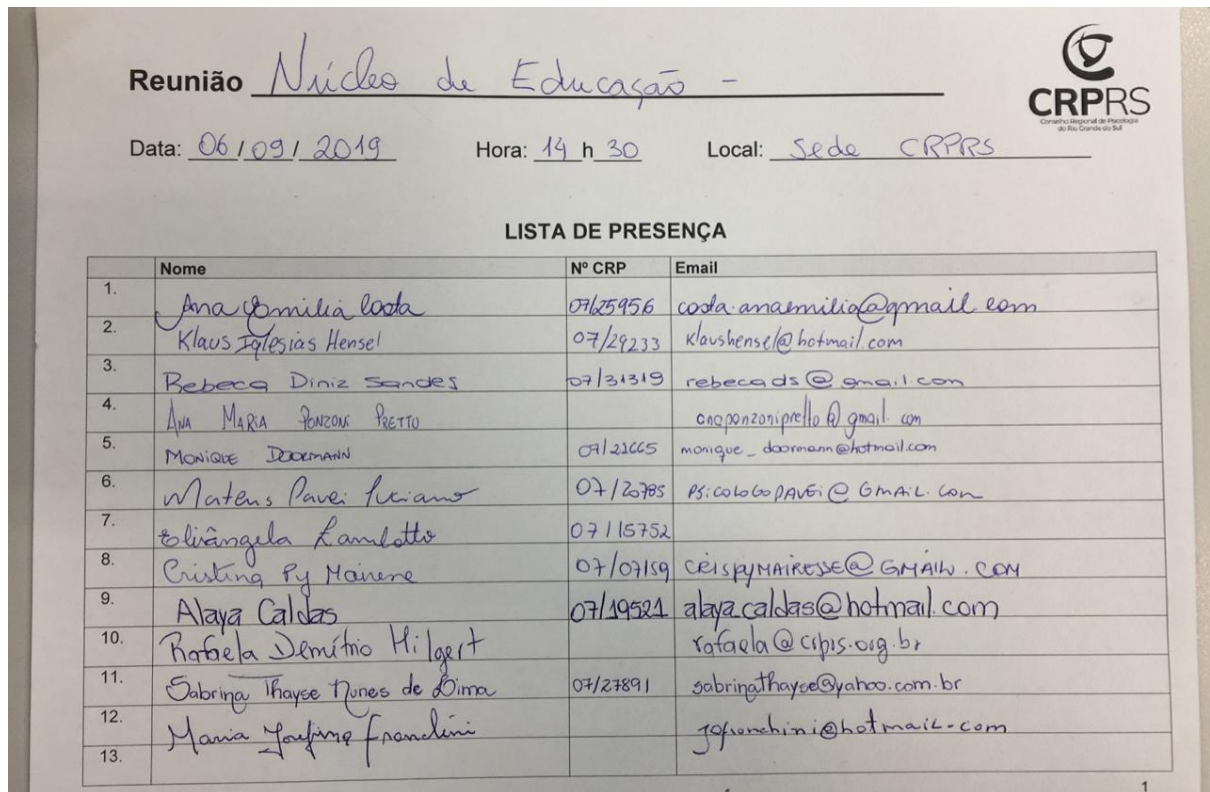 Reunião Núcleo de Educação -
CRPRS
Conselho Regional de Psicologia
do Rio Grande do Sul
Data: 06/09/2019 Hora: 14 h 30 Local: Sede CRPRS
LISTA DE PRESENÇA
Nome Nº CRP Email
1. Ana Emilia Costa 07/25956 costa.anaemilia@gmail.com
2. Klaus Iglesias Hensel 07/29233 klaushensel@hotmail.com
3. Rebeca Diniz Sandes 07/31319 rebecads@gmail.com
4. ANA MARIA PONZONI PRETTO anaponzonipretto@gmail.com
5. MONIQUE DOORMANN 07/21665 monique_doormann@hotmail.com
6. Mateus Pavei Luciano 07/20785 PSICOLOGOPAVEI@GMAIL.COM
7. Elisângela 07/15752
8. Cristina Py Mairesse 07/07159 CRISPYMAIRESSE@GMAIL.COM
9. Alaya Caldas 07/19521 alaya.caldas@hotmail.com
10. Rafaela Demétrio Hilgert rafaela@crprs.org.br
11. Sabrina Thayse Nunes de Lima 07/27891 sabrinathayse@yahoo.com.br
12. Maria Josefina Franchini jofranchini@hotmail.com
13.
1